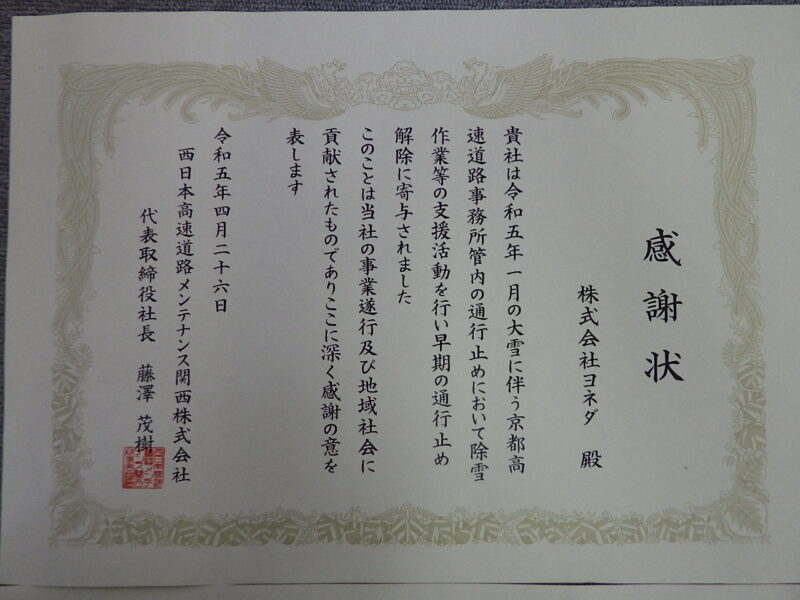 感謝状
株式会社ヨネダ 殿
貴社は令和五年一月の大雪に伴う京都高
速道路事務所管内の通行止めにおいて除雪
作業等の支援活動を行い早期の通行止め
解除に寄与されました
このことは当社の事業遂行及び地域社会に
貢献されたものでありここに深く感謝の意を
表します
令和五年四月二十六日
西日本高速道路メンテナンス関西株式会社
代表取締役社長 藤澤 茂樹